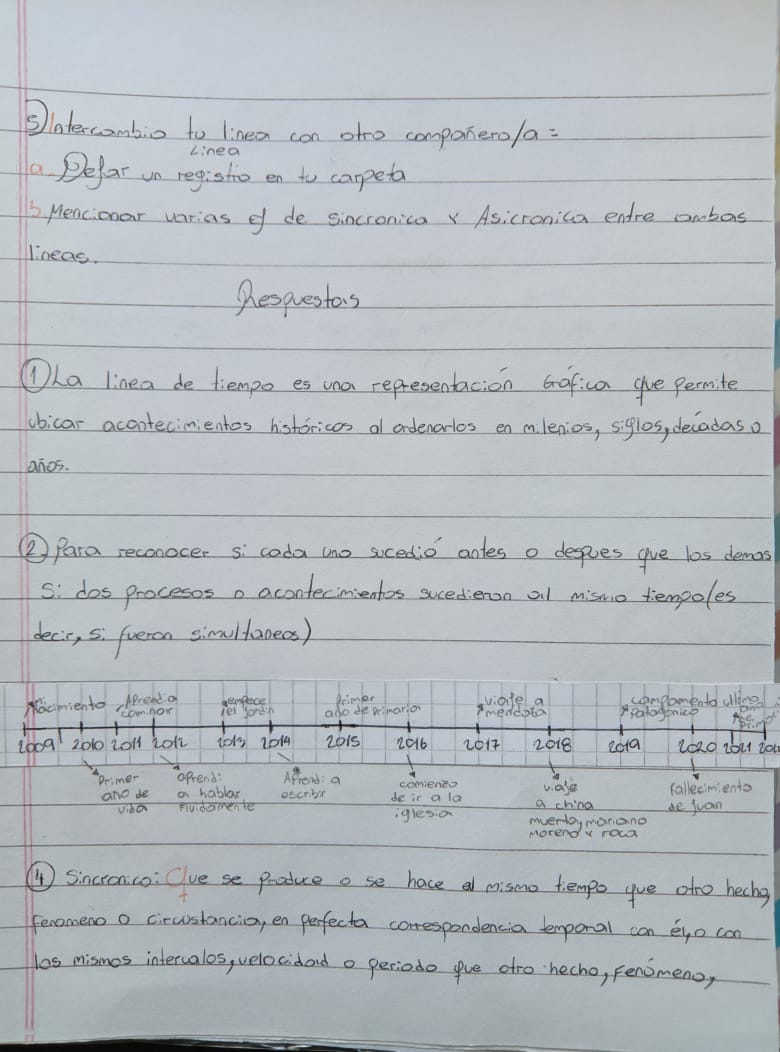 5) Intercambio tu linea con otro compañero/a =
Linea
a. Defar un registro en tu carpeta
b. Mencionar varias ej de sincronica y Asicronica entre ambas
lineas.
Respuestas
① La linea de tiempo es una representación Gráfica que Permite
ubicar acontecimientos históricos al ordenarlos en milenios, siglos, décadas o
años.
② Para reconocer si cada uno sucedió antes o despues que los demas
Si dos procesos o acontecimientos sucedieron al mismo tiempo (es
decir, si fueron simultaneos)
Nacimiento Aprendia caminar empece el jardin Primer año de primaria viaje a mendoza campamento patagonico ultimo año de Primar
2009 2010 2011 2012 2013 2014 2015 2016 2017 2018 2019 2020 2021
Primer año de vida aprendi a hablar Fluidamente Aprendi a escribir comienzo de ir a la iglesia viaje a china muerta, mariano Moreno y roca fallecimiento de Juan
④ Sincronico: Que se produce o se hace al mismo tiempo que otro hecho,
fenomeno o circustancia, en perfecta correspondencia temporal con él, o con
los mismos intervalos, velocidad o periodo que otro hecho, fenómeno,